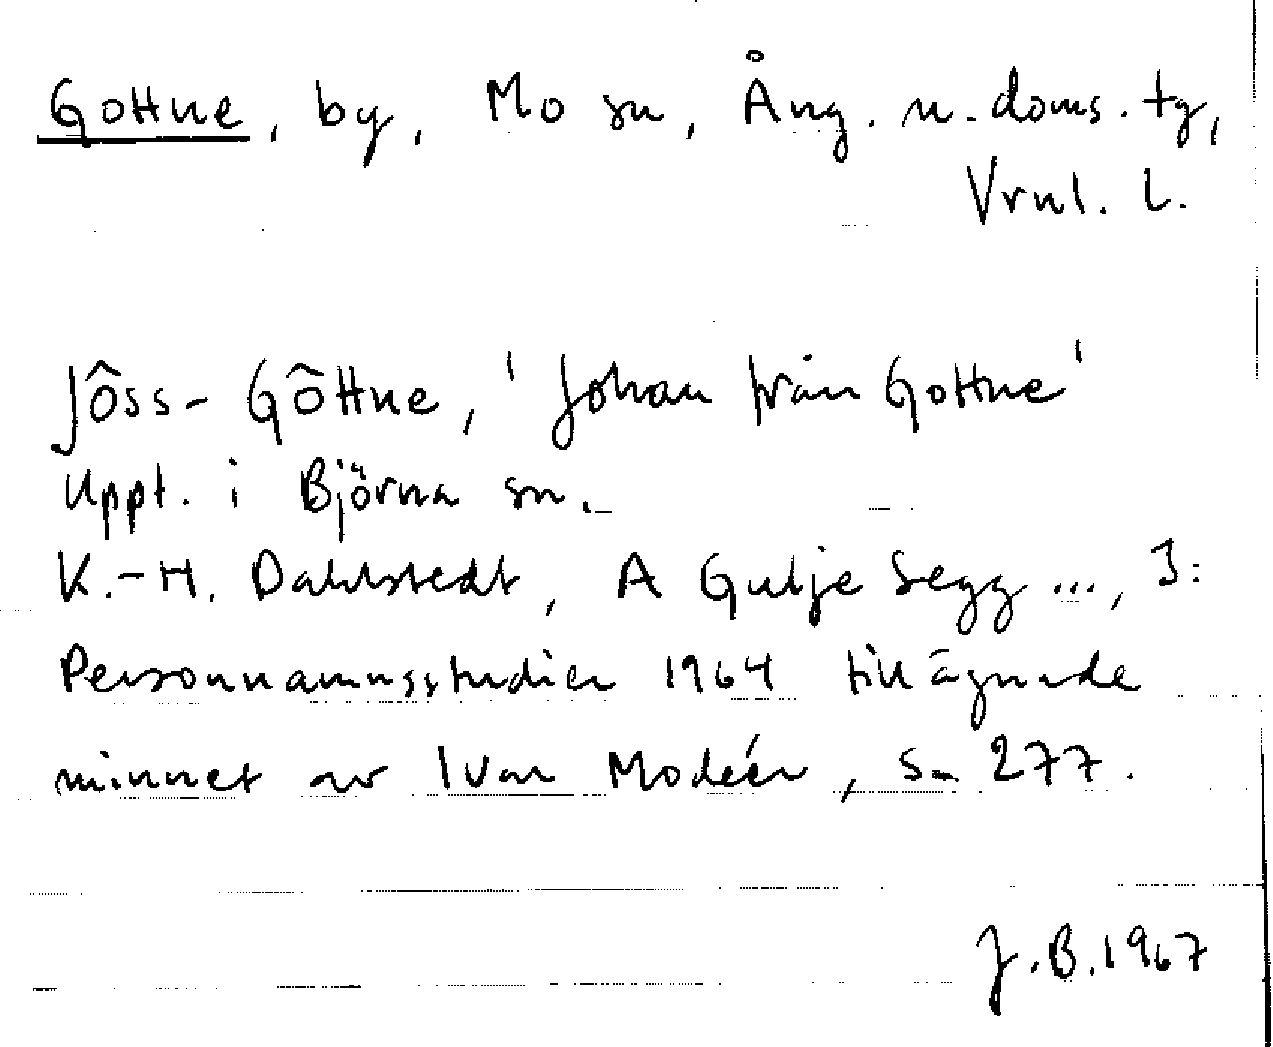 Gottne, by, Mo sn, Ång. n. doms. tg,
Vrnl. L.
Jôss-Gôttne, 'Johan från Gottne'
Uppt. i Björna sn.
K.-H. Dahlstedt, A Gulje Segg ..., I:
Personnamnsstudier 1964 tillägnade
minnet av Ivar Modéer, s. 277.
J.B. 1967